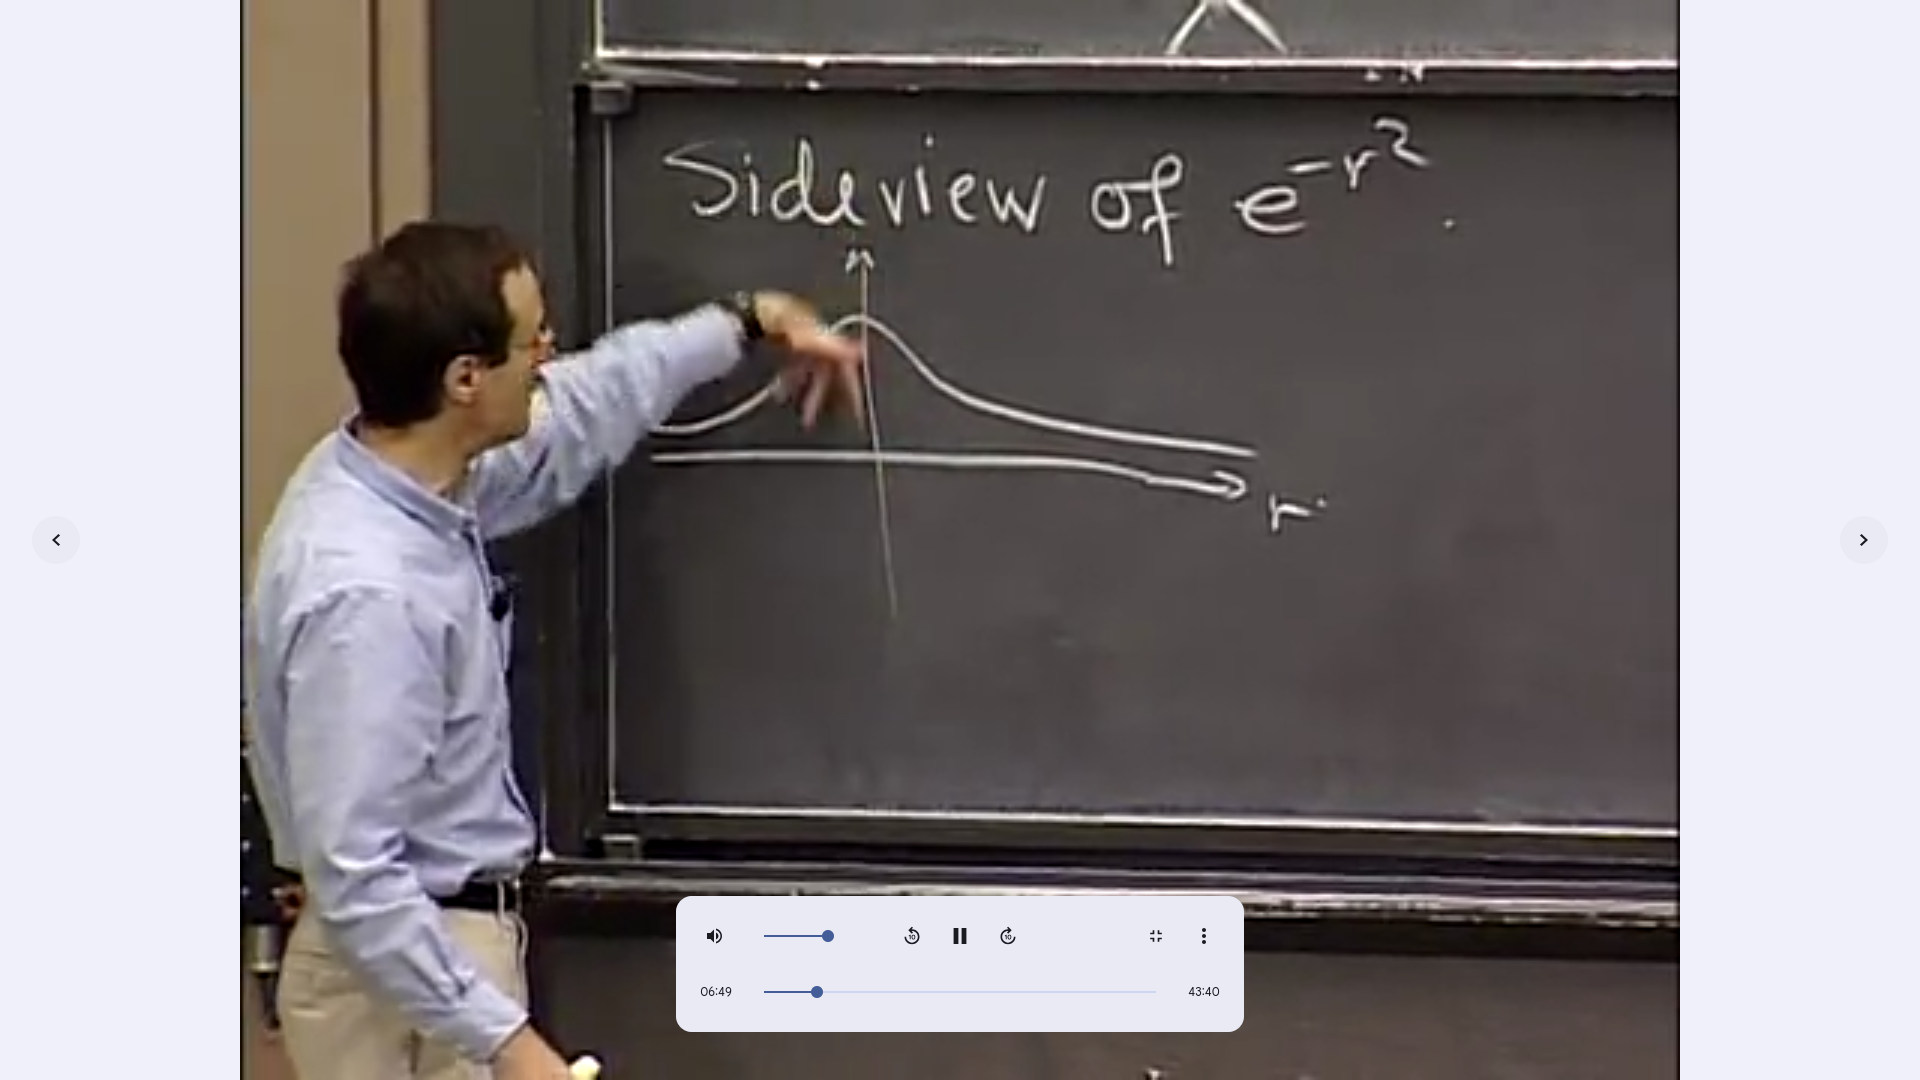 Side view of e^{-r^2}.
r
06:49
43:40